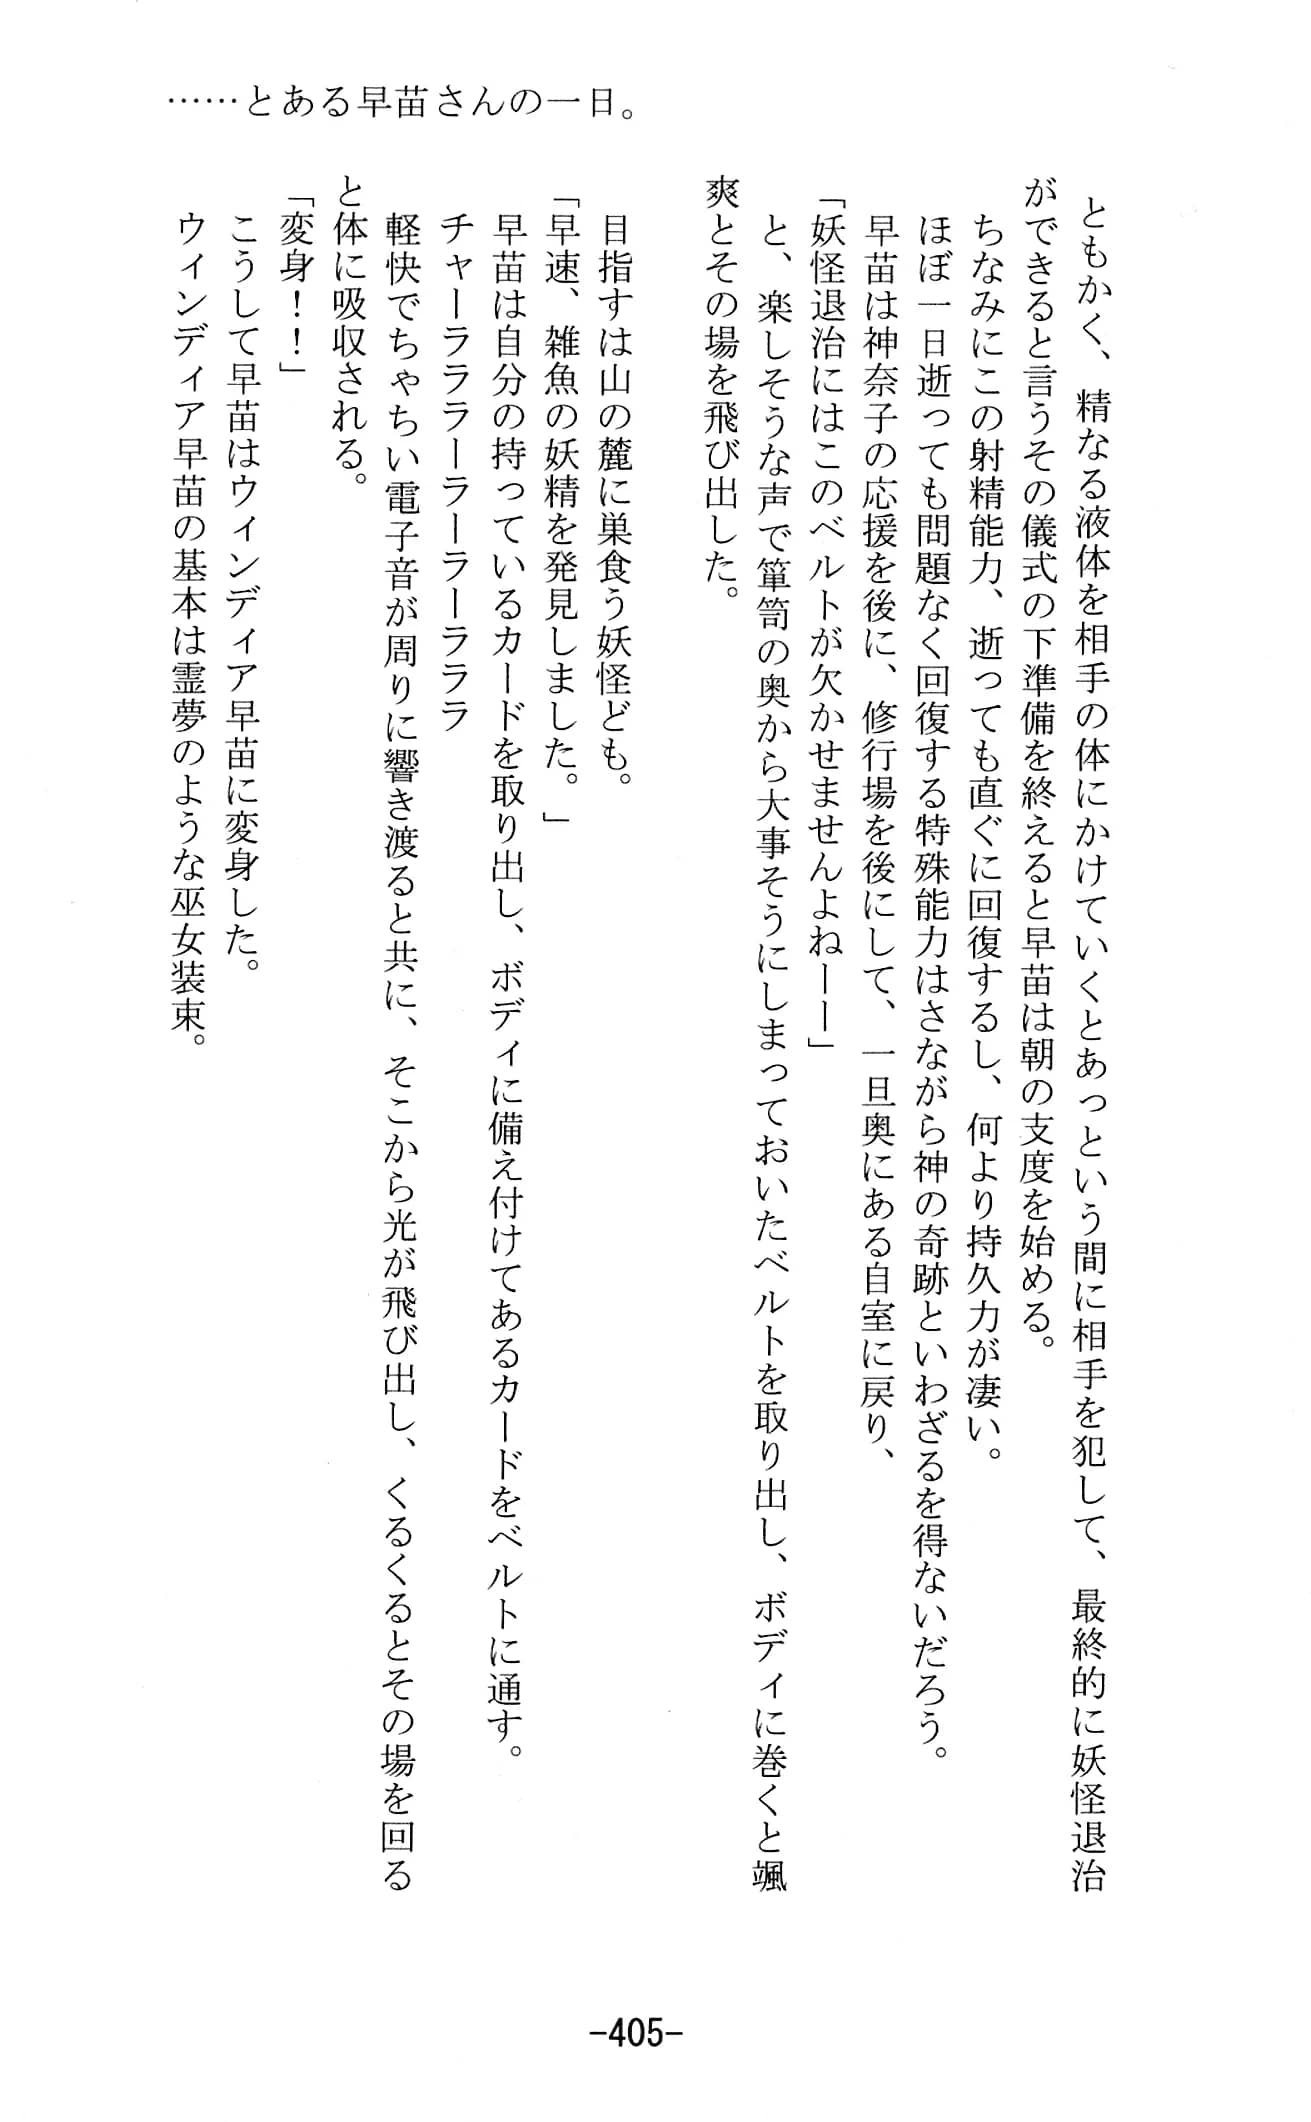 ……とある早苗さんの一日。
ともかく、精なる液体を相手の体にかけていくとあっという間に相手を犯して、最終的に妖怪退治
ができると言うその儀式の下準備を終えると早苗は朝の支度を始める。
ちなみにこの射精能力、逝っても直ぐに回復するし、何より持久力が凄い。
ほぼ一日逝っても問題なく回復する特殊能力はさながら神の奇跡といわざるを得ないだろう。
早苗は神奈子の応援を後に、修行場を後にして、一旦奥にある自室に戻り、
「妖怪退治にはこのベルトが欠かせませんよねーー」
と、楽しそうな声で箪笥の奥から大事そうにしまっておいたベルトを取り出し、ボディに巻くと颯
爽とその場を飛び出した。
目指すは山の麓に巣食う妖怪ども。
「早速、雑魚の妖精を発見しました。」
早苗は自分の持っているカードを取り出し、ボディに備え付けてあるカードをベルトに通す。
チャーラララーラーラーラララ
軽快でちゃちい電子音が周りに響き渡ると共に、そこから光が飛び出し、くるくるとその場を回る
と体に吸収される。
「変身！！」
こうして早苗はウィンディア早苗に変身した。
ウィンディア早苗の基本は霊夢のような巫女装束。
-405-